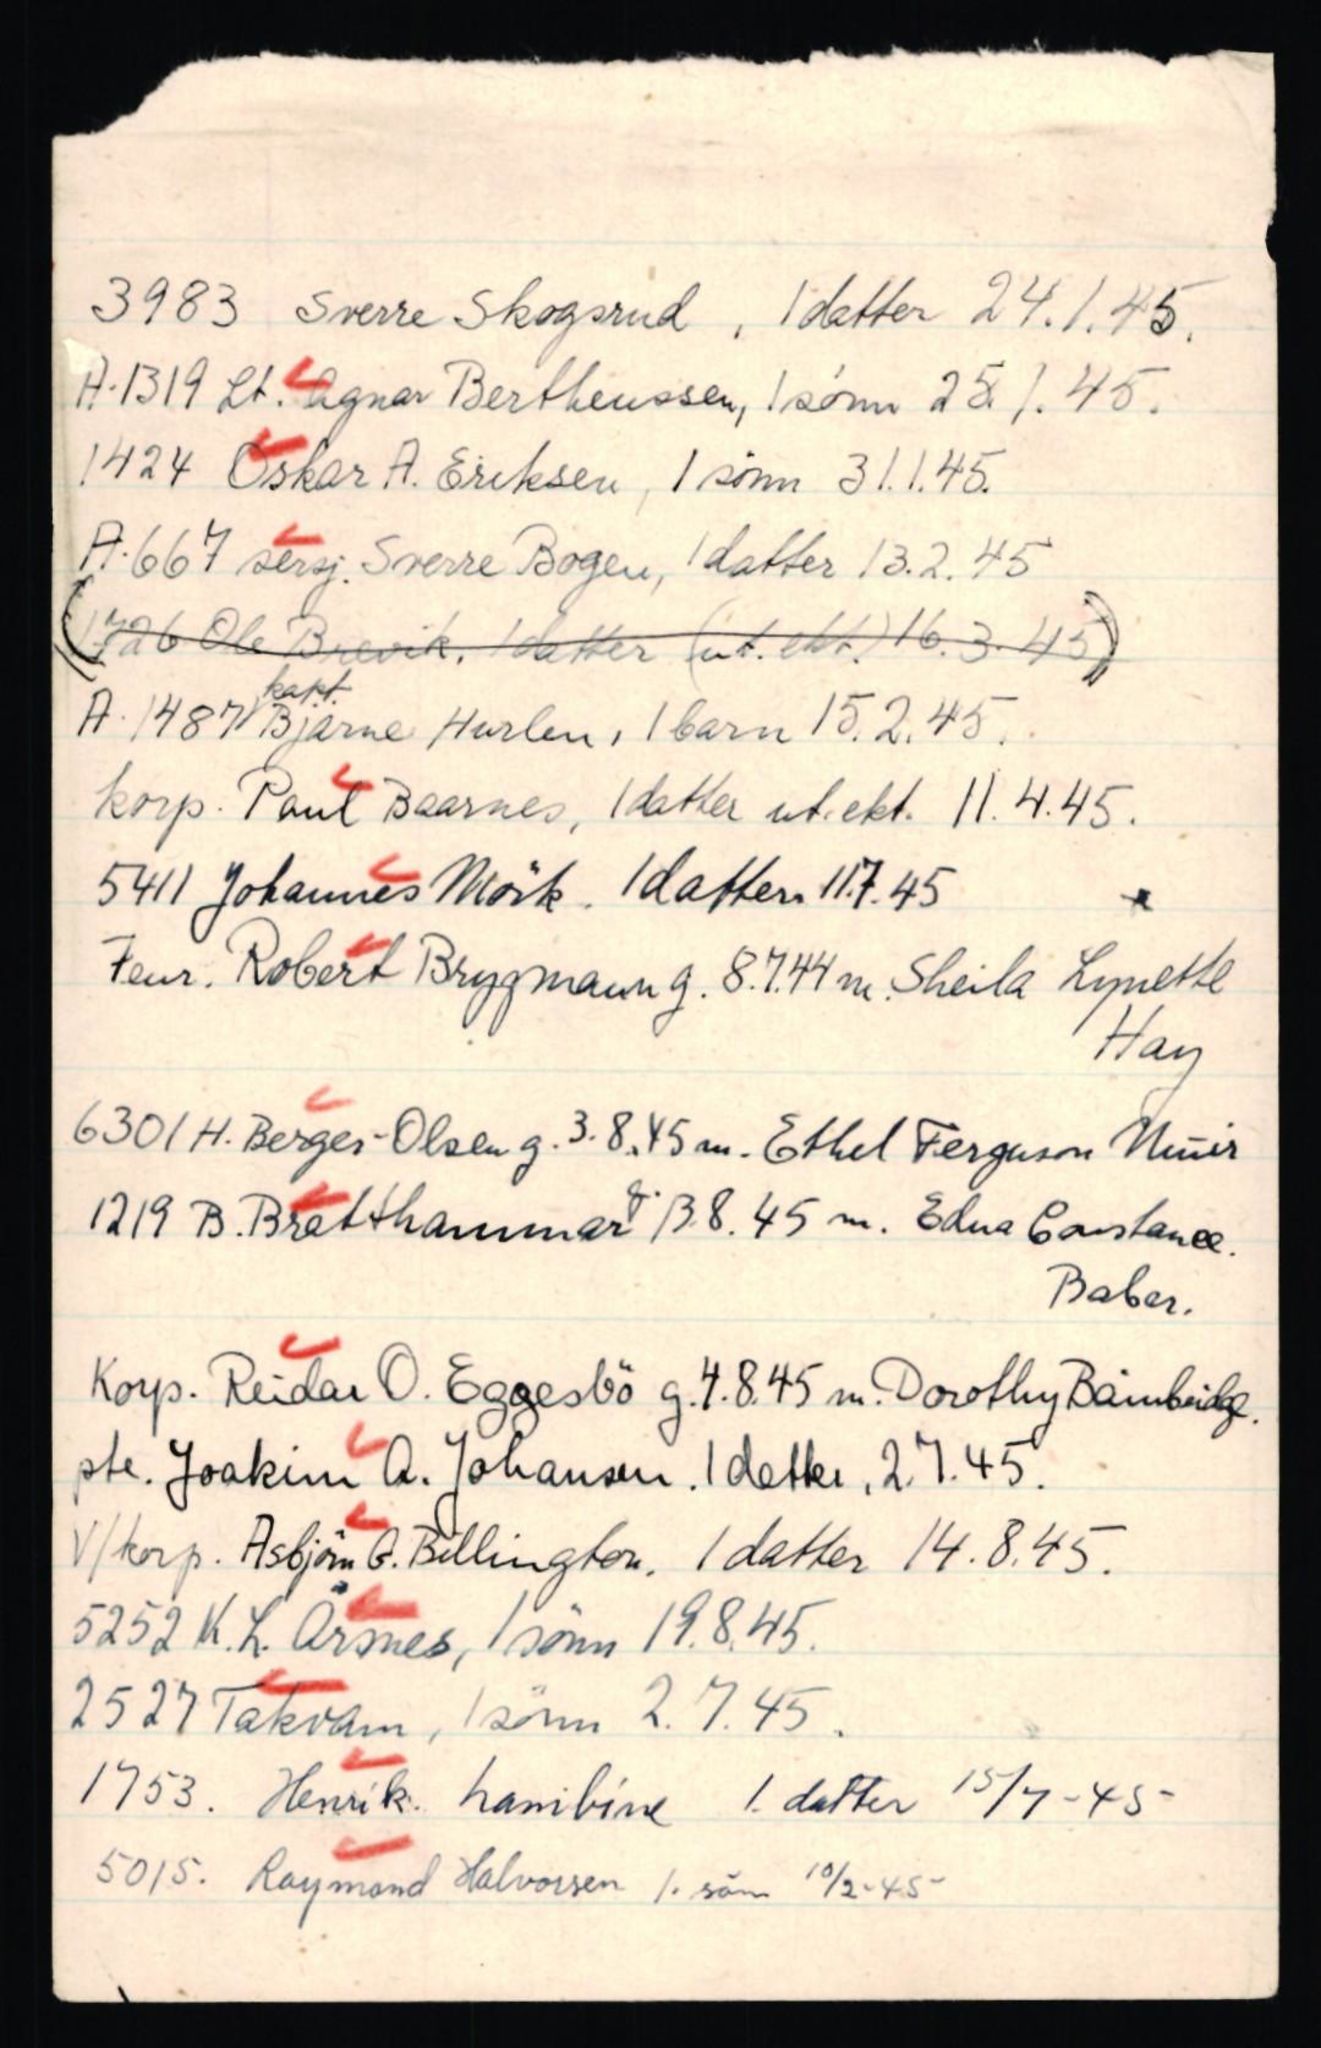 3983 Sverre Skogsrud, 1 datter 24.1.45.
A.1319 Lt. Agnar Bertheussen, 1 sönn 25.1.45.
1424 Oskar A. Eriksen, 1 sönn 31.1.45.
A.667 sersj. Sverre Bogen, 1 datter 13.2.45
(1726 Ole Brevik, 1 datter (ut. ekt.) 16.3.45)
kapt.
A.1487 Bjarne Hurlen, 1 barn 15.2.45.
korp. Paul Baarnes, 1 datter ut. ekt. 11.4.45.
5411 Johannes Mörk. 1 datter. 11.7.45
Fenr. Robert Brygmann g. 8.7.44 m. Sheila Lynette
Hay
6301 H. Berger-Olsen g. 3.8.45 m. Ethel Ferguson Muir
1219 B. Bratthammar g. 13.8.45 m. Edna Constance.
Baber.
Korp. Reidar O. Eggesbö g. 4.8.45 m. Dorothy Bainbridge.
pte. Joakim A. Johansen. 1 datter, 2.7.45.
V/korp. Asbjörn G. Billington. 1 datter 14.8.45.
5252 K.L. Årsnes, 1 sönn 19.8.45.
2527 Takvam, 1 sönn 2.7.45.
1753. Henrik. 1. datter 15/7-45-
5015. Raymond Halvorsen 1. sönn 10/2-45-